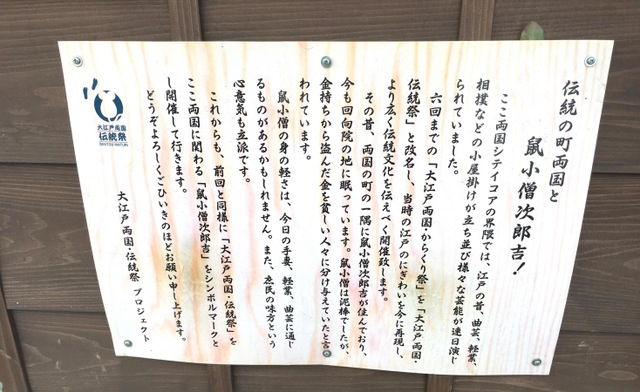 伝統の町両国と
鼠小僧次郎吉！
ここ両国シティコアの界隈では、江戸の昔、曲芸、軽業、
相撲などの小屋掛けが立ち並び様々な芸能が連日演じ
られていました。
六回までの「大江戸両国・からくり祭」を「大江戸両国・
伝統祭」と改名し、当時の江戸のにぎわいを今に再現し、
より広く伝統文化を伝えべく開催致します。
その昔、両国の町の一隅に鼠小僧次郎吉が住んでおり、
今も回向院の地に眠っています。鼠小僧は泥棒でしたが、
金持ちから盗んだ金を貧しい人々に分け与えていたと言
われています。
鼠小僧の身の軽さは、今日の手妻、軽業、曲芸に通じ
るものがあるかもしれません。また、庶民の味方という
心意気も立派です。
これからも、前回と同様に「大江戸両国・伝統祭」を
ここ両国に関わる「鼠小僧次郎吉」をシンボルマークと
し開催して行きます。
どうぞよろしくごひいきのほどお願い申し上げます。
大江戸両国・伝統祭 プロジェクト
大江戸両国
伝統祭